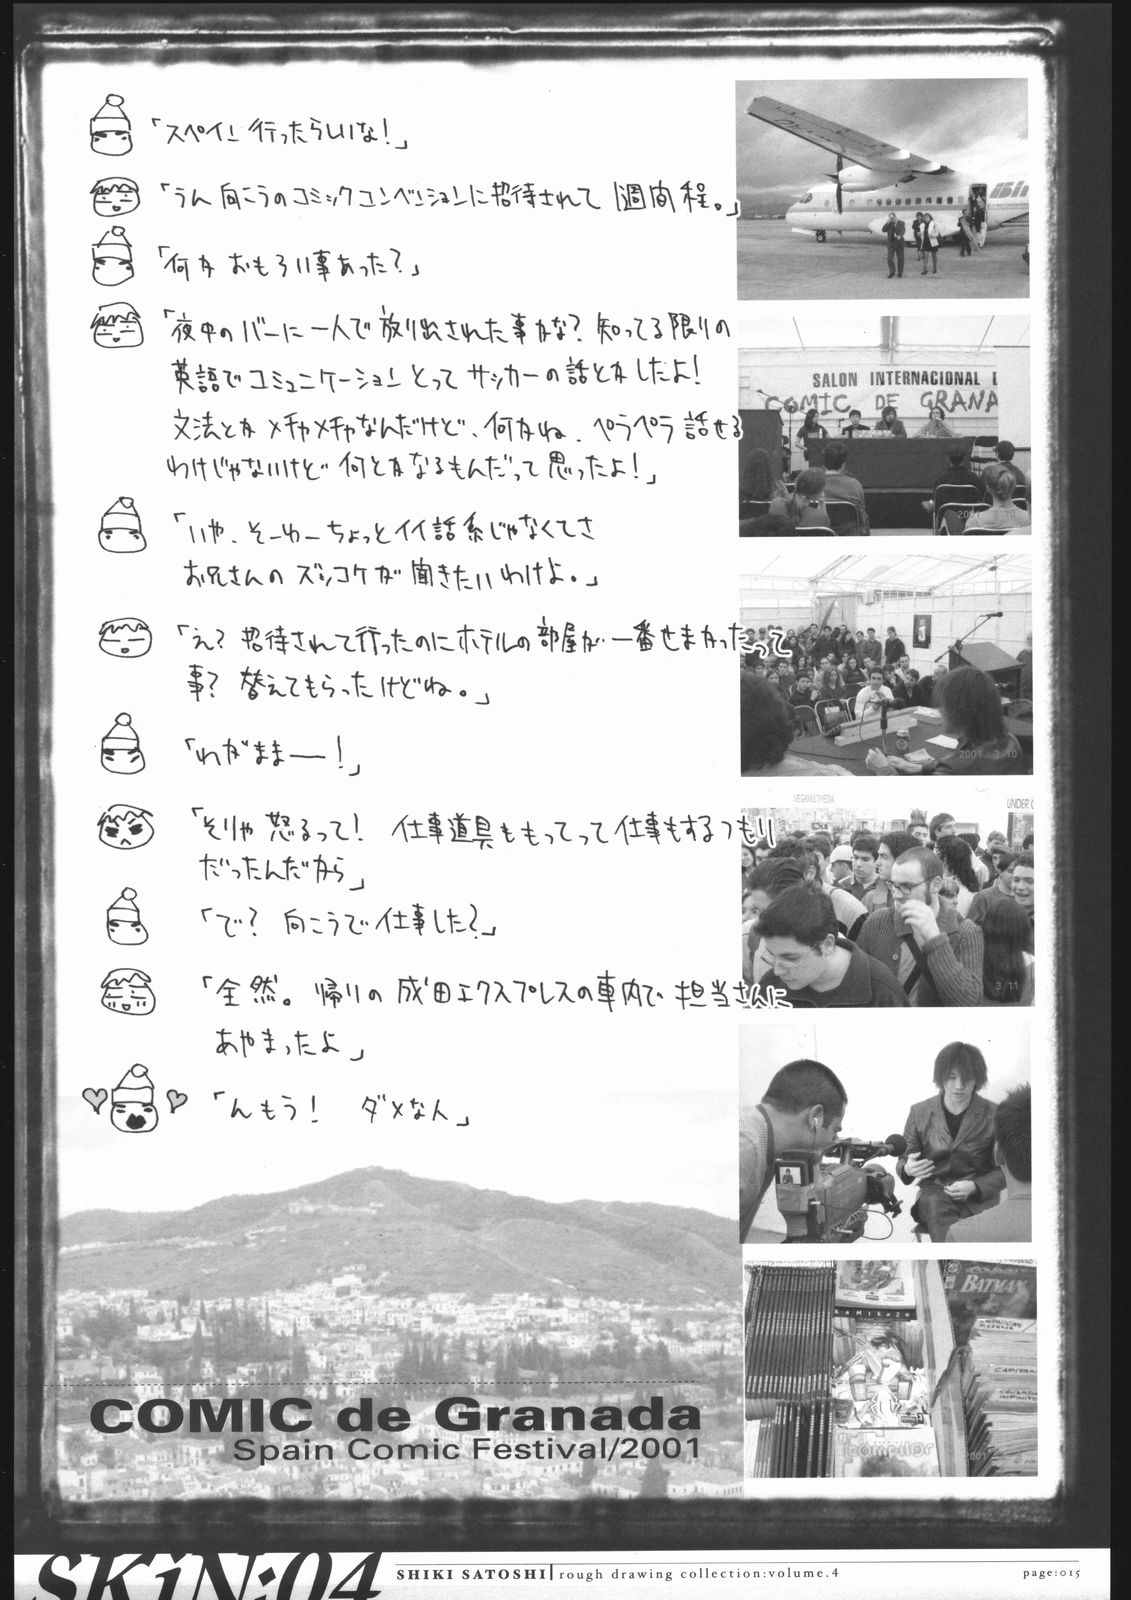 「スペイン行ったらしいな！」
「うん 向こうのコミックコンベンションに招待されて 1週間程。」
「何か おもろい事あった？」
「夜中の バーに 一人で 放り出された事かな？ 知ってる限りの
英語で コミュニケーション とって サッカーの話とかしたよ！
文法とか メチャメチャなんだけど、何かね、ペラペラ 話せる
わけじゃないけど 何とかなるもんだって思ったよ！」
「いや、そーゆーちょっとイイ話系じゃなくてさ
お兄さんの ズッコケが 聞きたいわけよ。」
「え？ 招待されて行ったのにホテルの部屋が 一番せまかったって
事？ 替えてもらったけどね。」
「わがままー！」
「そりゃ 怒るって！ 仕事道具ももってって仕事もするつもり
だったんだから」
「で？ 向こうで仕事した？」
「全然。帰りの 成田エクスプレスの車内で 担当さんに
あやまったよ」
「んもう！ ダメな人」
SALON INTERNACIONAL D
COMIC DE GRANA
2001 3 10
MEGAMULTIMEDIA
UNDER C
3 11
KaMiKaZe
BATMAN
COMIC de Granada
Spain Comic Festival/2001
SKiN:04
SHIKI SATOSHI rough drawing collection:volume.4
page:015